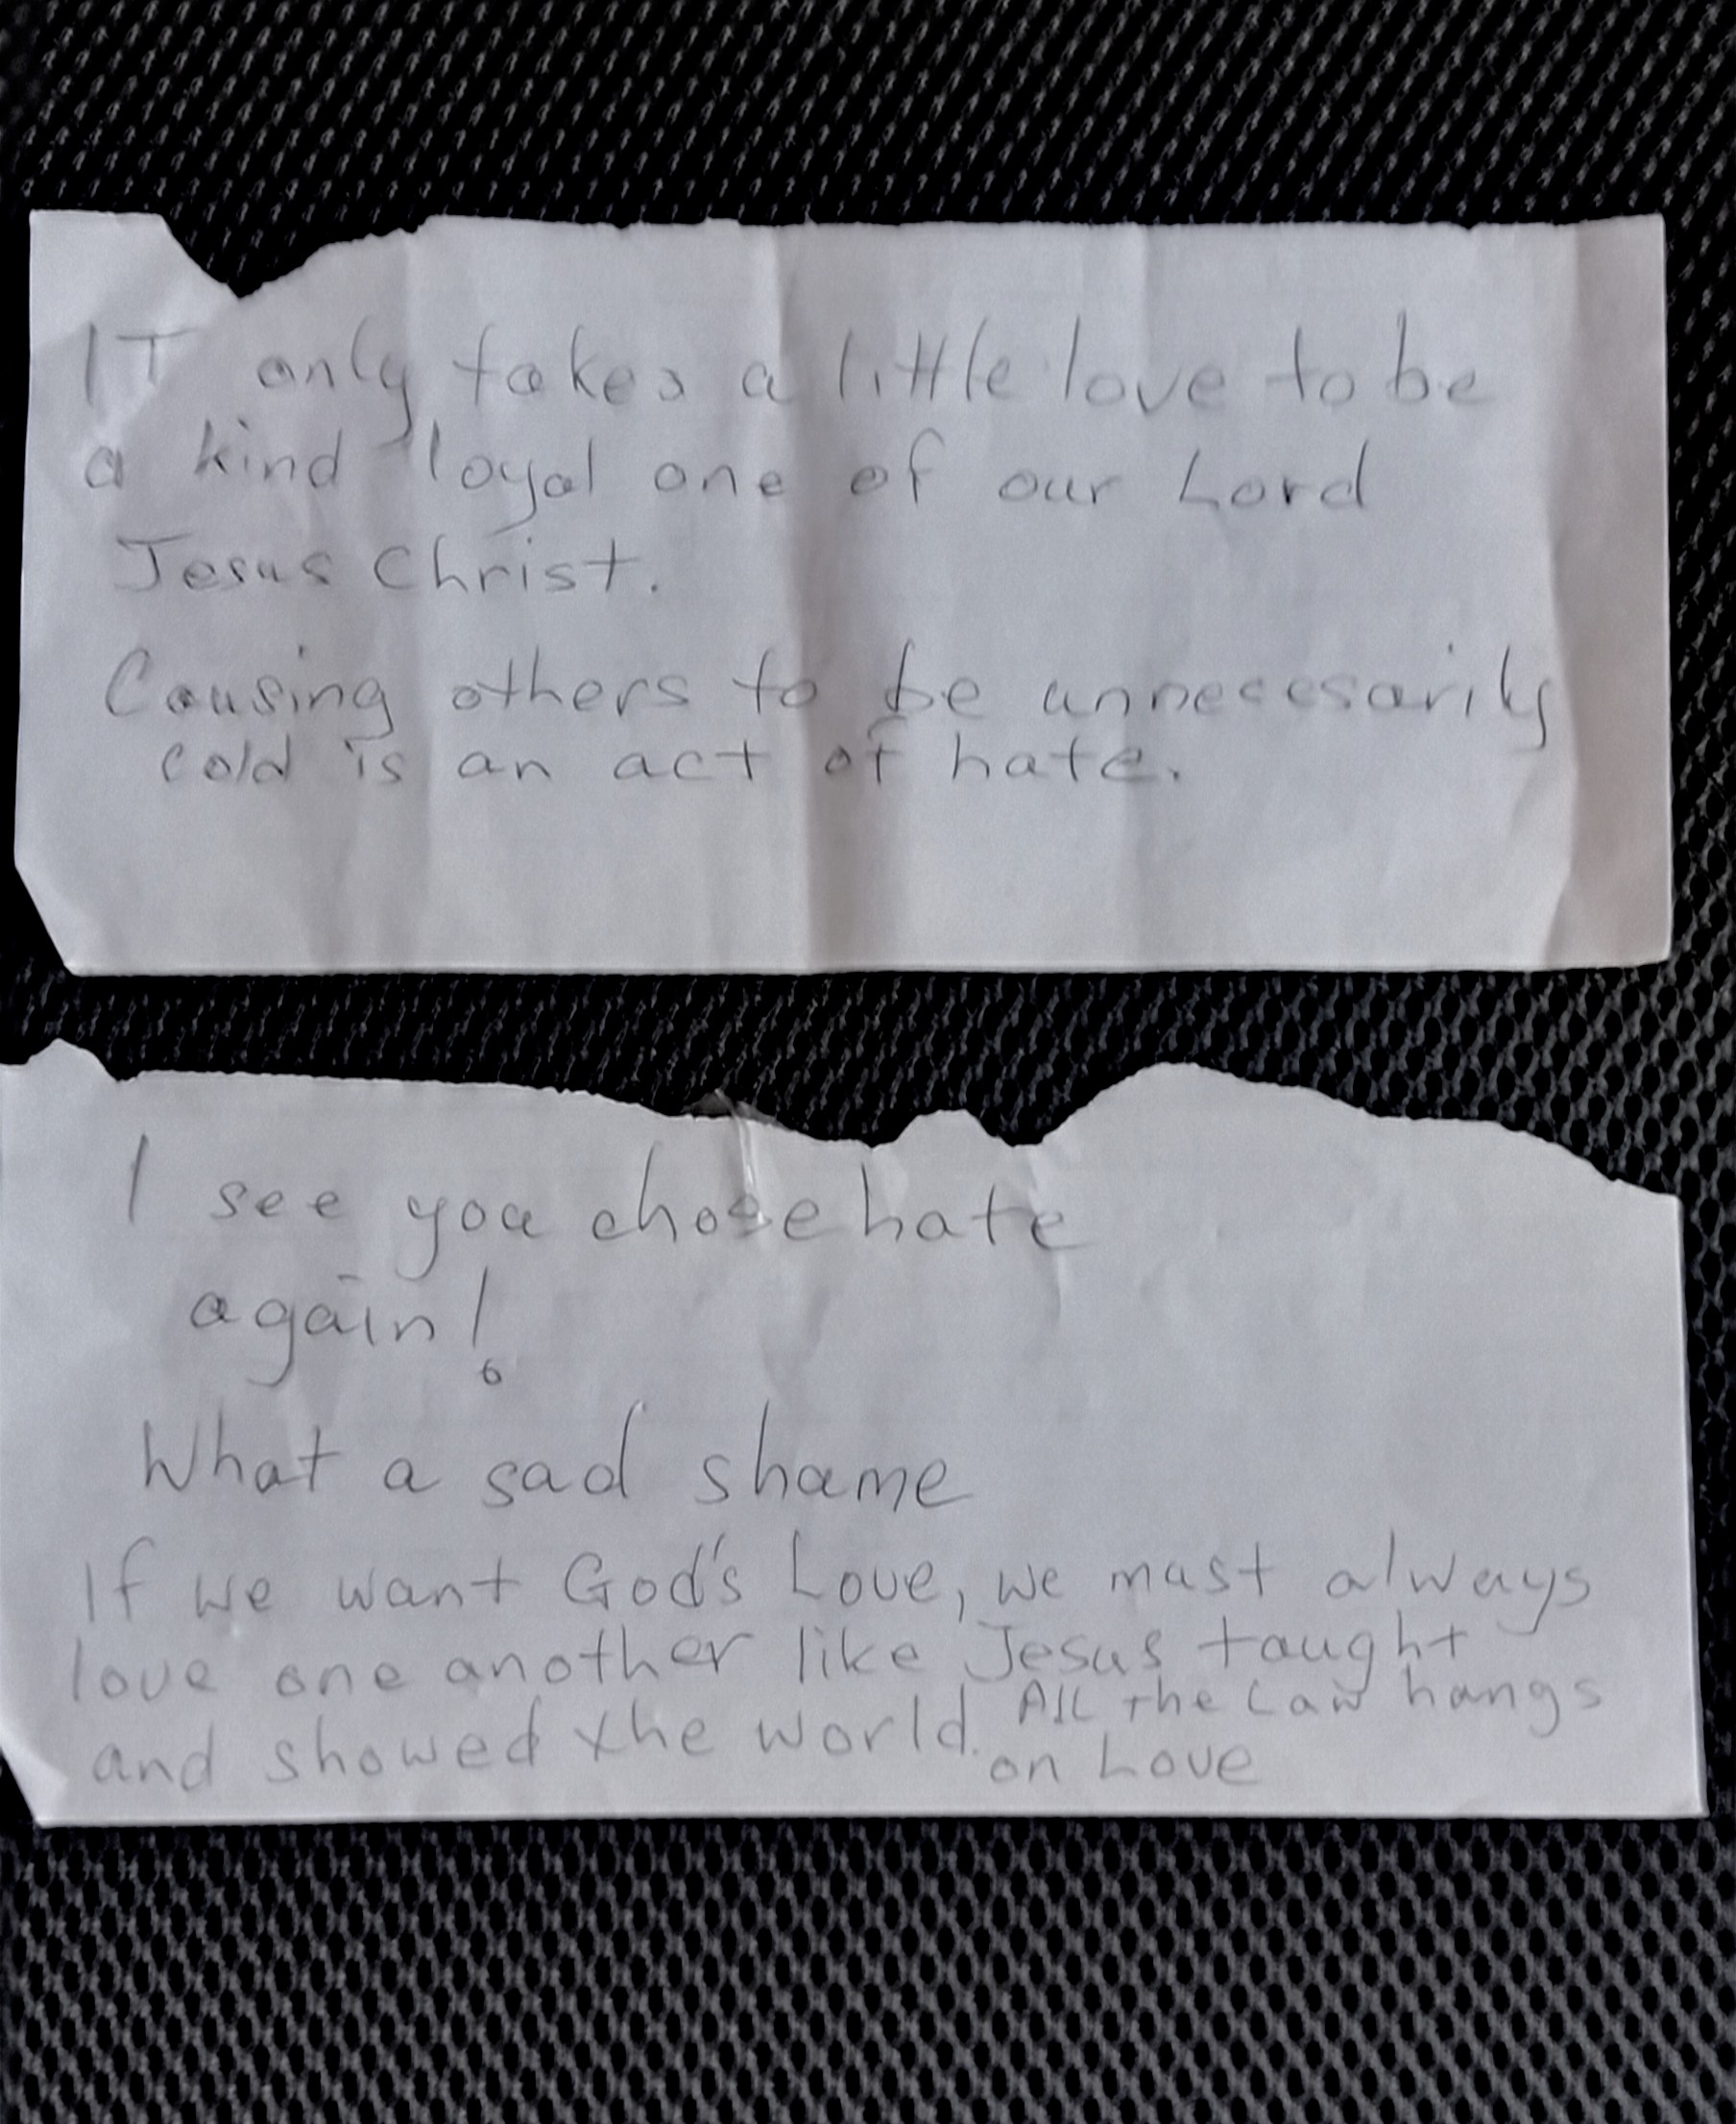 IT only takes a little love to be
a kind loyal one of our Lord
Jesus Christ.
Causing others to be unnecessarily
cold is an act of hate.
I see you chose hate
again!
What a sad shame
If we want God's Love, we must always
love one another like Jesus taught
and showed the world. All the Law hangs
on Love